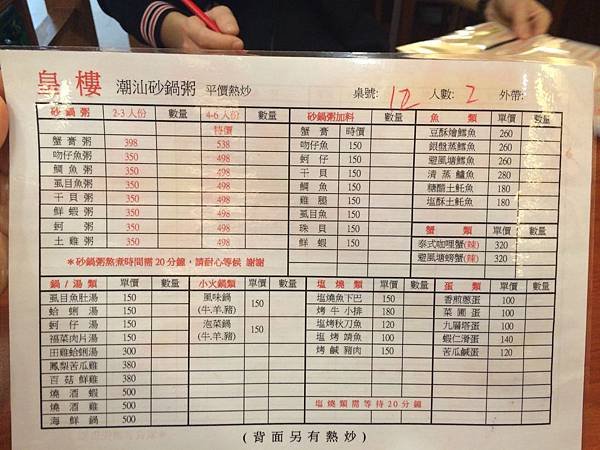 皇樓 潮汕砂鍋粥 平價熱炒 桌號: 12 人數: 2 外帶:
砂鍋粥 2-3人份 數量 4-6人份 數量
特價
蟹膏粥 398 538
吻仔魚 350 498
鯛魚粥 350 498
虱目魚粥 350 498
干貝粥 350 498
鮮蝦粥 350 498
蚵粥 350 498
土雞粥 350 498
*砂鍋粥熬煮時間需20分鐘,請耐心等候 謝謝
砂鍋粥加料 數量
蟹膏 時價
吻仔魚 150
蚵仔 150
干貝 150
鯛魚 150
雞腿 150
虱目魚 150
珠貝 150
鮮蝦 150
魚類 單價 數量
豆酥燴鱈魚 260
銀盤蒸鱈魚 260
避風塘鱈魚 260
清蒸鱸魚 280
糖醋土魠魚 180
塩酥土魠魚 180
蟹類 單價 數量
泰式咖哩蟹(辣) 320
避風塘螃蟹(辣) 320
鍋/湯類 單價 數量
虱目魚肚湯 150
蛤蜊湯 150
蚵仔湯 150
福菜肉片湯 150
田雞蛤蜊湯 300
鳳梨苦瓜雞 380
百菇鮮雞 380
燒酒蝦 500
燒酒雞 500
海鮮鍋 500
小火鍋類 單價 數量
風味鍋 150
(牛.羊.豬)
泡菜鍋 150
(牛.羊.豬)
塩燒類 單價 數量
塩燒魚下巴 150
烤牛小排 180
塩烤秋刀魚 120
塩烤鯖魚 100
烤鹹豬肉 150
塩燒類需等待20分鐘
蛋類 單價 數量
香煎蔥蛋 100
菜圃蛋 100
九層塔蛋 100
蝦仁滑蛋 140
苦瓜鹹蛋 120
(背面另有熱炒)